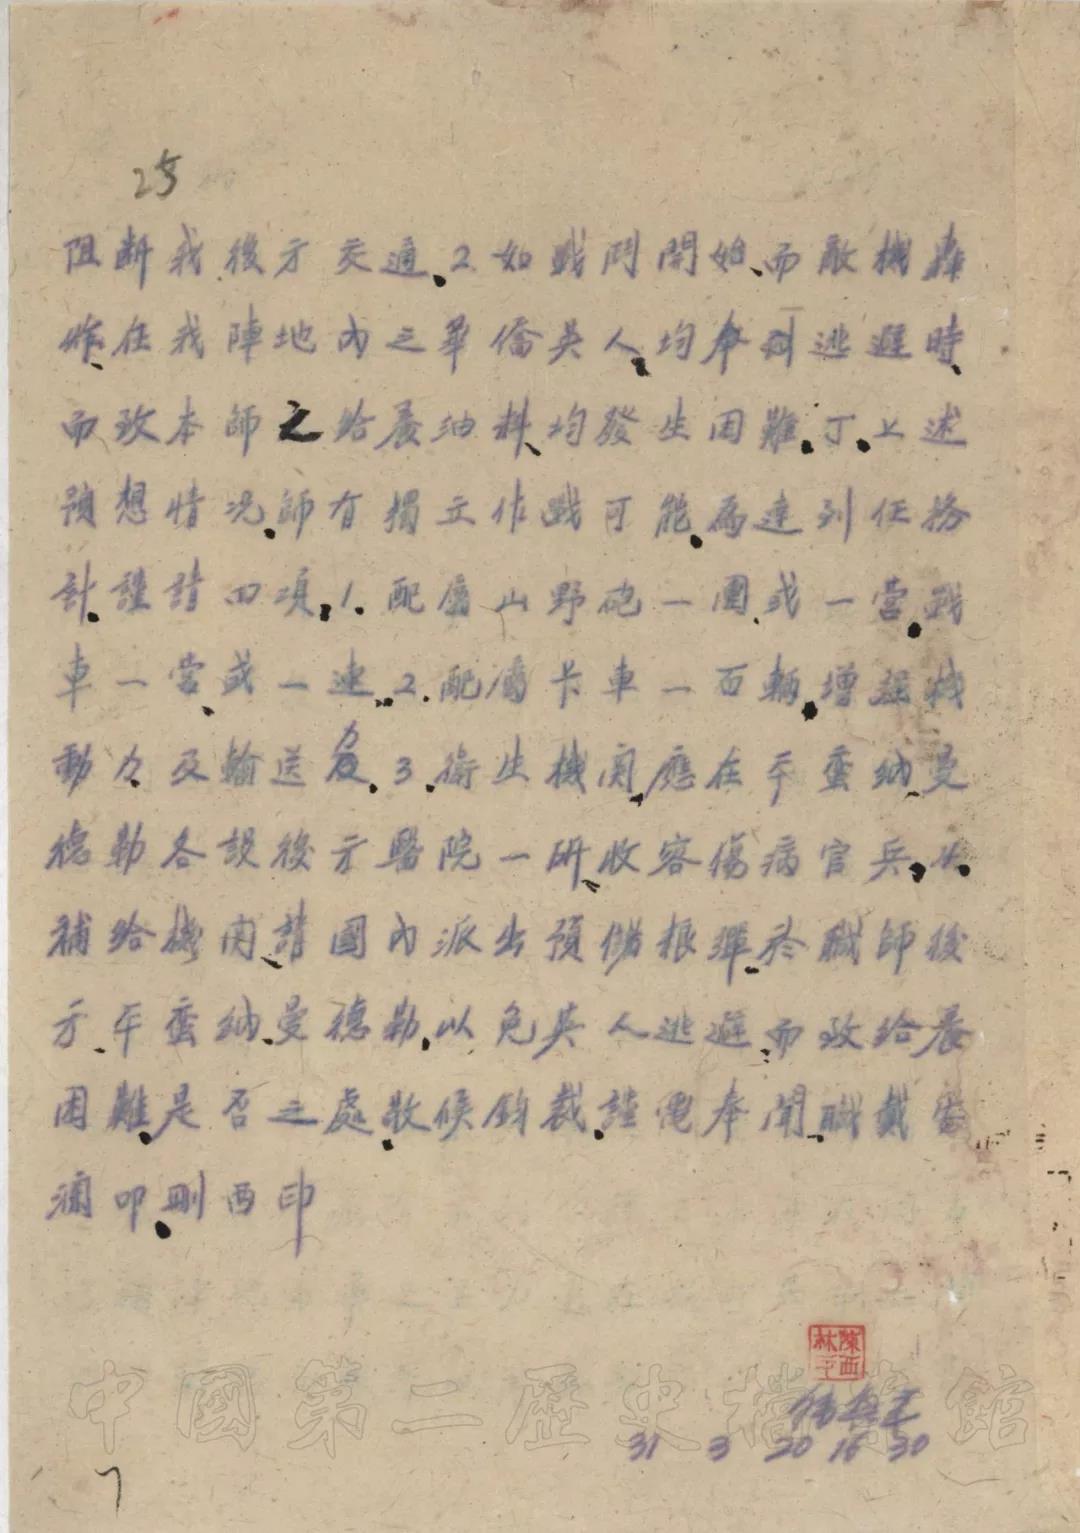 25
阻断我後方交通.2.如戰鬥開始、而敵機轟
炸、在我陣地內之華僑英人、均奔逃避時、
而致本師之給養油料、均發生困難.丁.上述
預想情況.師有獨立作戰可能.為達到任務
計.謹請四項.1.配屬山野砲一團、或一營.戰
車一營、或一連.2.配屬卡車一百輛.增強機
動力、及輸送力.3.衛生機関、應在平蛮納、曼
德勒各設後方醫院一所、收容傷病官兵.4.
補給機関、請國內派出預備根彈、於職師後
方、平蛮納、曼德勒.以免英人逃避、而致給養
困難.是否之處.敬候鈞裁.謹電奉聞.職戴安
瀾叩.刪酉印
陳西林
31 3 20 16 30
中國第二歷史檔案館
7